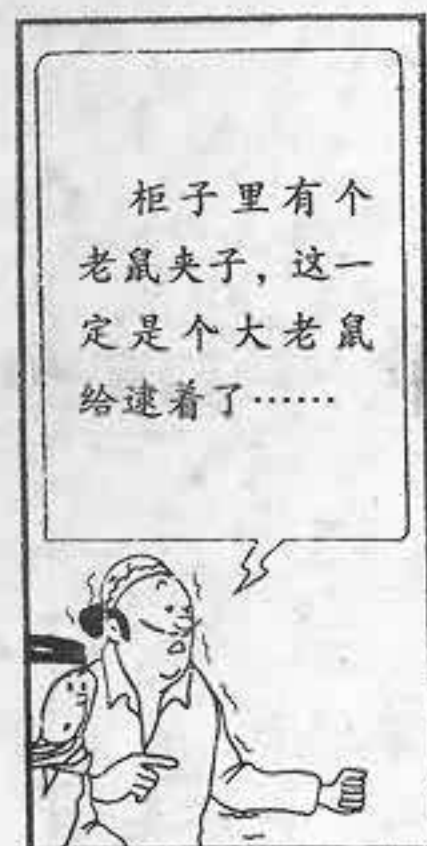 柜子里有个
老鼠夹子，这一
定是个大老鼠
给逮着了……